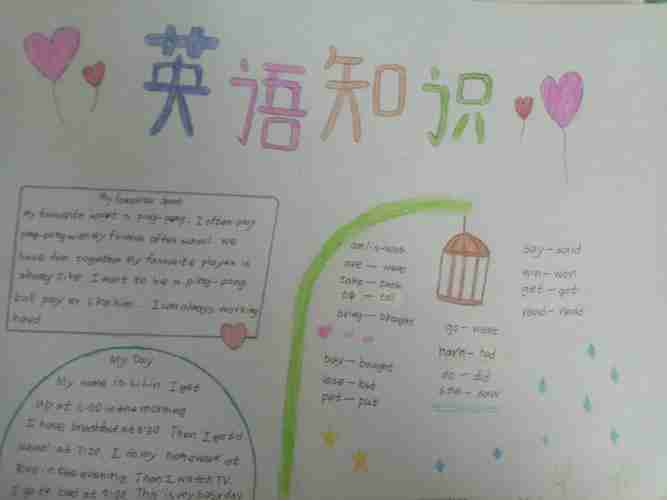 英语知识
My favourite sport
My favourite sport is ping-pong. I often play
ping-pong with my friends after school. We
have fun together. My favourite player is
I want to be a ping-pong
ball player like him. I am always working
hard
My Day
My name is Li Lin. I get
up at 6:00 in the morning
I have breakfast at 6:30. Then I go to
school at 7:20. I do my homework at
in the evening. Then I watch TV.
I go to bed at 9:00. This is my
am/is-was
are - were
take - took
bring - brought
buy - bought
lose - lost
put - put
go - went
do - did
see - saw
say - said
win - won
get - got
read - read